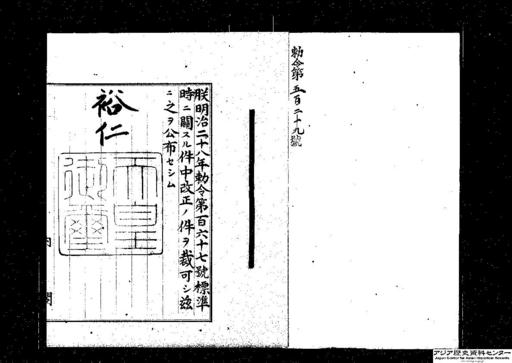 勅令第五百二十九號
朕明治二十八年勅令第百六十七號標準
時ニ關スル件中改正ノ件ヲ裁可シ茲
ニ之ヲ公布セシム
裕仁
天皇御璽
内閣
アジア歴史資料センター
Japan Center for Asian Historical Records